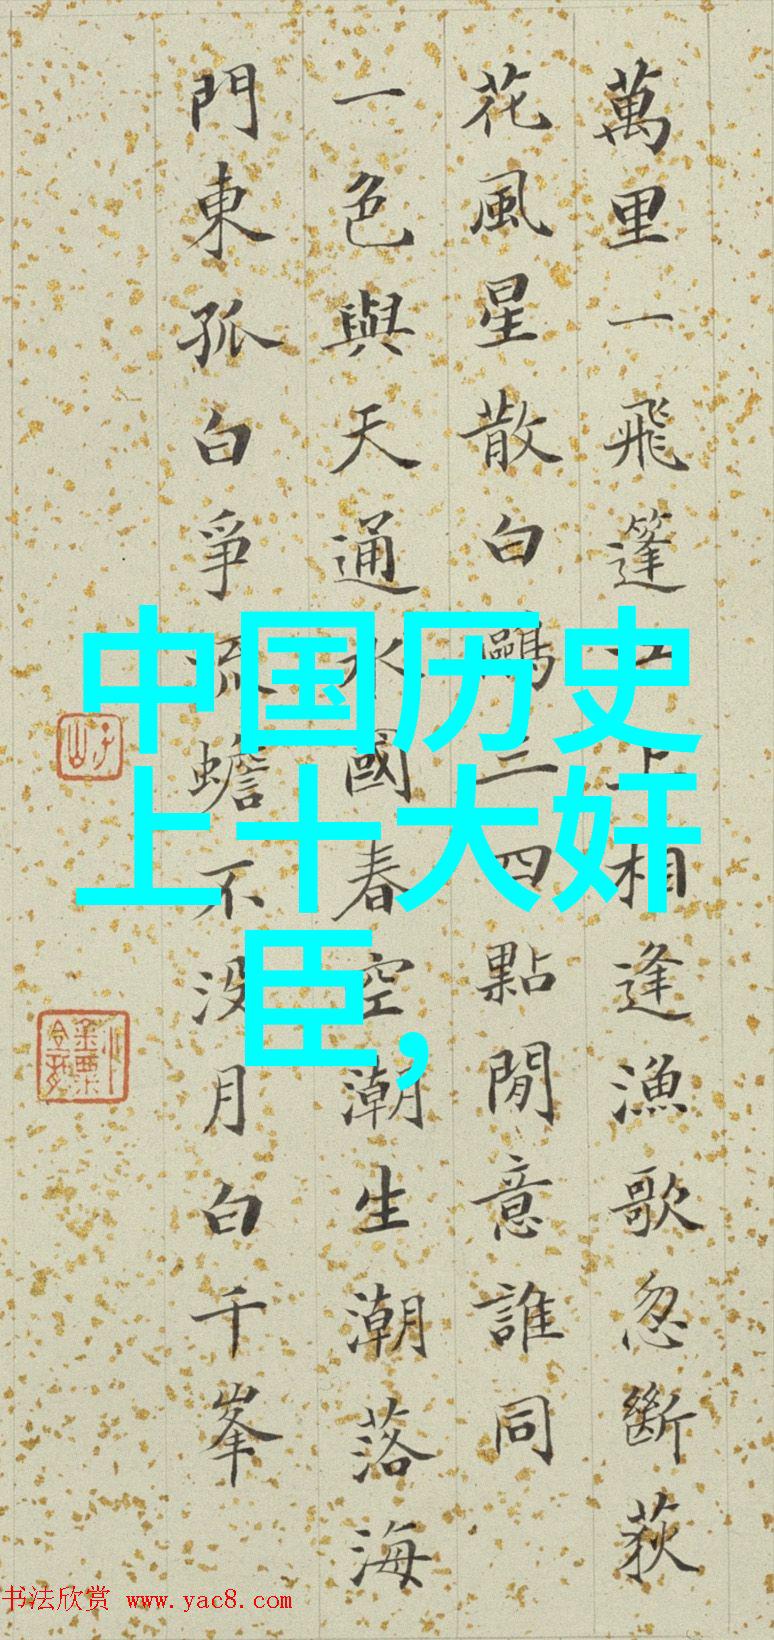 萬里一飛篷江上相逢漁歌忽斷荻
花風星散白鷗三四點閒意誰同
一色與天通水國春空潮生潮落海
門東孤白爭流蟾不没月白千峯
中国历史
上十大奸
臣,
书法欣赏 www.yac8.com